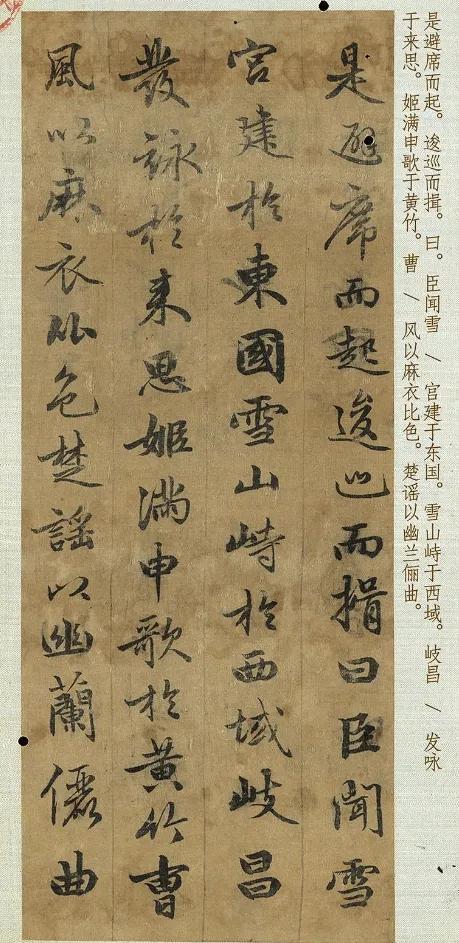 是避席而起。逡巡而揖。曰。臣闻雪 \ 宫建于东国。雪山峙于西域。岐昌 \ 发咏
于来思。姬满申歌于黄竹。曹 \ 风以麻衣比色。楚谣以幽兰俪曲。
是避席而起逡巡而揖曰臣聞雪
宮建於東國雪山峙於西域岐昌
發詠於来思姬滿申歌於黄竹曹
風以麻衣比色楚謠以幽蘭儷曲